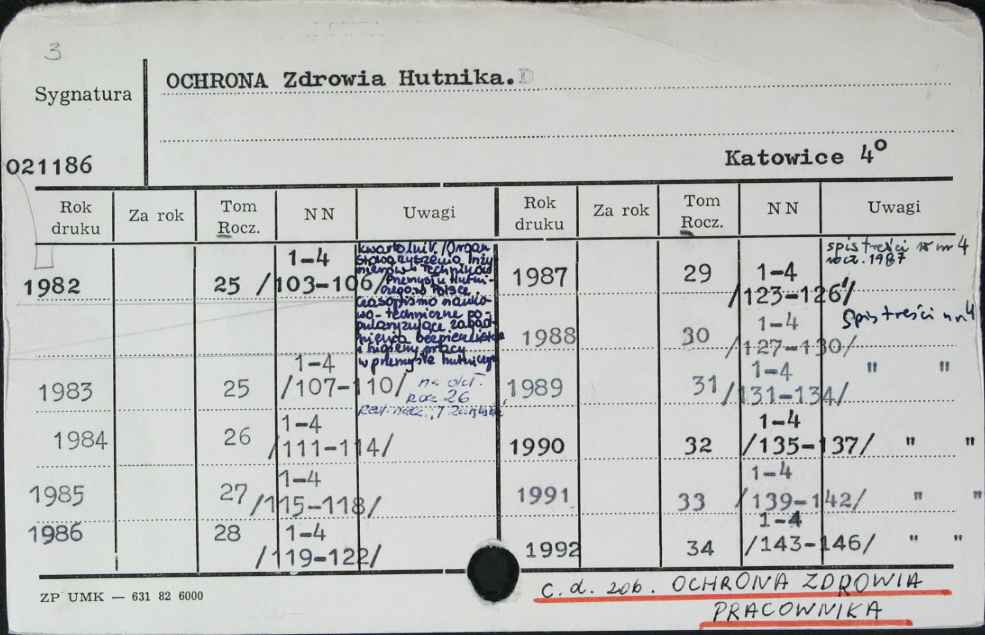 3
OCHRONA Zdrowia Hutnika.
Sygnatura
021186
Katowice 4°
Rok druku Za rok Tom Rocz. NN Uwagi Rok druku Za rok Tom Rocz. NN Uwagi
1982 25 1-4 /103-106/
kwartalnik /Organ
Stowarzyszenia Inży
nierów i Techników
Przemysłu Hutni-
czego w Polsce.
Czasopismo nauko-
wo-techniczne po-
pularyzujące zagad
nienia bezpieczeństwa
i higieny pracy
w przemyśle hutniczym
1983 25 1-4 /107-110/ na okł.
Rocz. 26
1984 26 1-4 /111-114/
1985 27 1-4 /115-118/
1986 28 1-4 /119-122/
1987 29 1-4 /123-126/ spis treści w nr 4
rocz. 1987
1988 30 1-4 /127-130/ Spis treści w nr 4
1989 31 1-4 /131-134/ " "
1990 32 1-4 /135-137/ " "
1991 33 1-4 /139-142/ " "
1992 34 1-4 /143-146/ " "
ZP UMK — 631 82 6000
c.d. zob. OCHRONA ZDROWIA
PRACOWNIKA